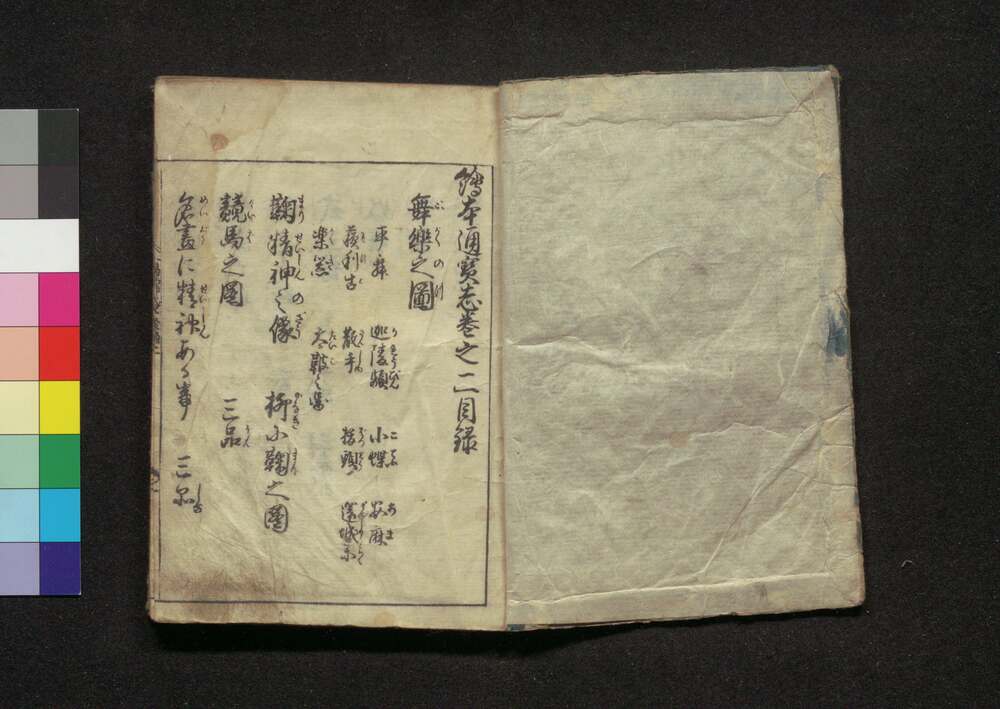 繪本通寳志巻之二目録
舞樂之圖
平舞 迦陵頻 小蝶 安麻
蘇利古 散手 撥頭 還城楽
楽器 太鼓之図
鞠精神之像 柳に鞠之圖
競馬之圖 三品
名畫に精神ある事 三品